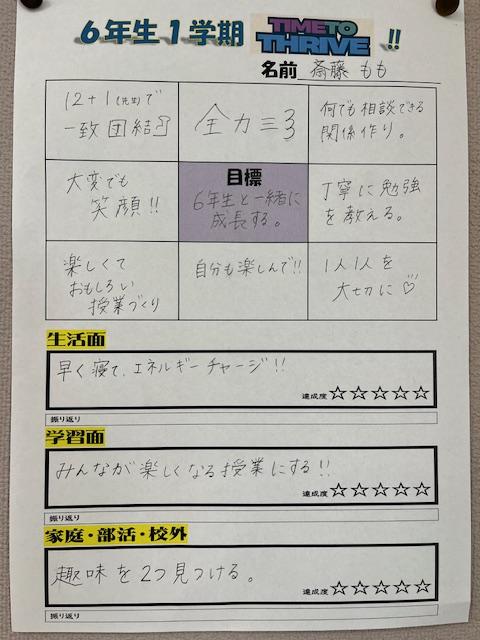 6年生1学期 TIME TO THRIVE !!
名前 斎藤 もも
12+1(先生)で
一致団結
全力
何でも相談できる
関係作り。
大変でも
笑顔!!
目標
6年生と一緒に
成長する。
丁寧に勉強
を教える。
楽しくて
おもしろい
授業づくり
自分も楽しんで!!
1人1人を
大切に♡
生活面
早く寝て、エネルギーチャージ!!
達成度☆☆☆☆☆
振り返り
学習面
みんなが楽しくなる授業にする!!
達成度☆☆☆☆☆
振り返り
家庭・部活・校外
趣味を2つ見つける。
達成度☆☆☆☆☆
振り返り